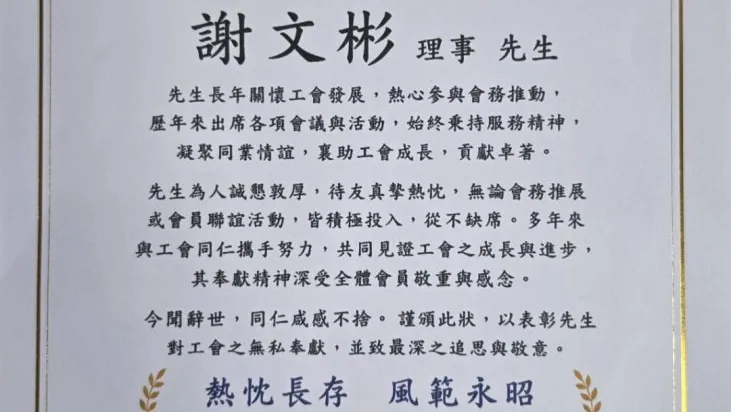 謝文彬 理事 先生
先生長年關懷工會發展，熱心參與會務推動，
歷年來出席各項會議與活動，始終秉持服務精神，
凝聚同業情誼，襄助工會成長，貢獻卓著。
先生為人誠懇敦厚，待友真摯熱忱，無論會務推展
或會員聯誼活動，皆積極投入，從不缺席。多年來
與工會同仁攜手努力，共同見證工會之成長與進步，
其奉獻精神深受全體會員敬重與感念。
今聞辭世，同仁咸感不捨。謹頒此狀，以表彰先生
對工會之無私奉獻，並致最深之追思與敬意。
熱忱長存 風範永昭